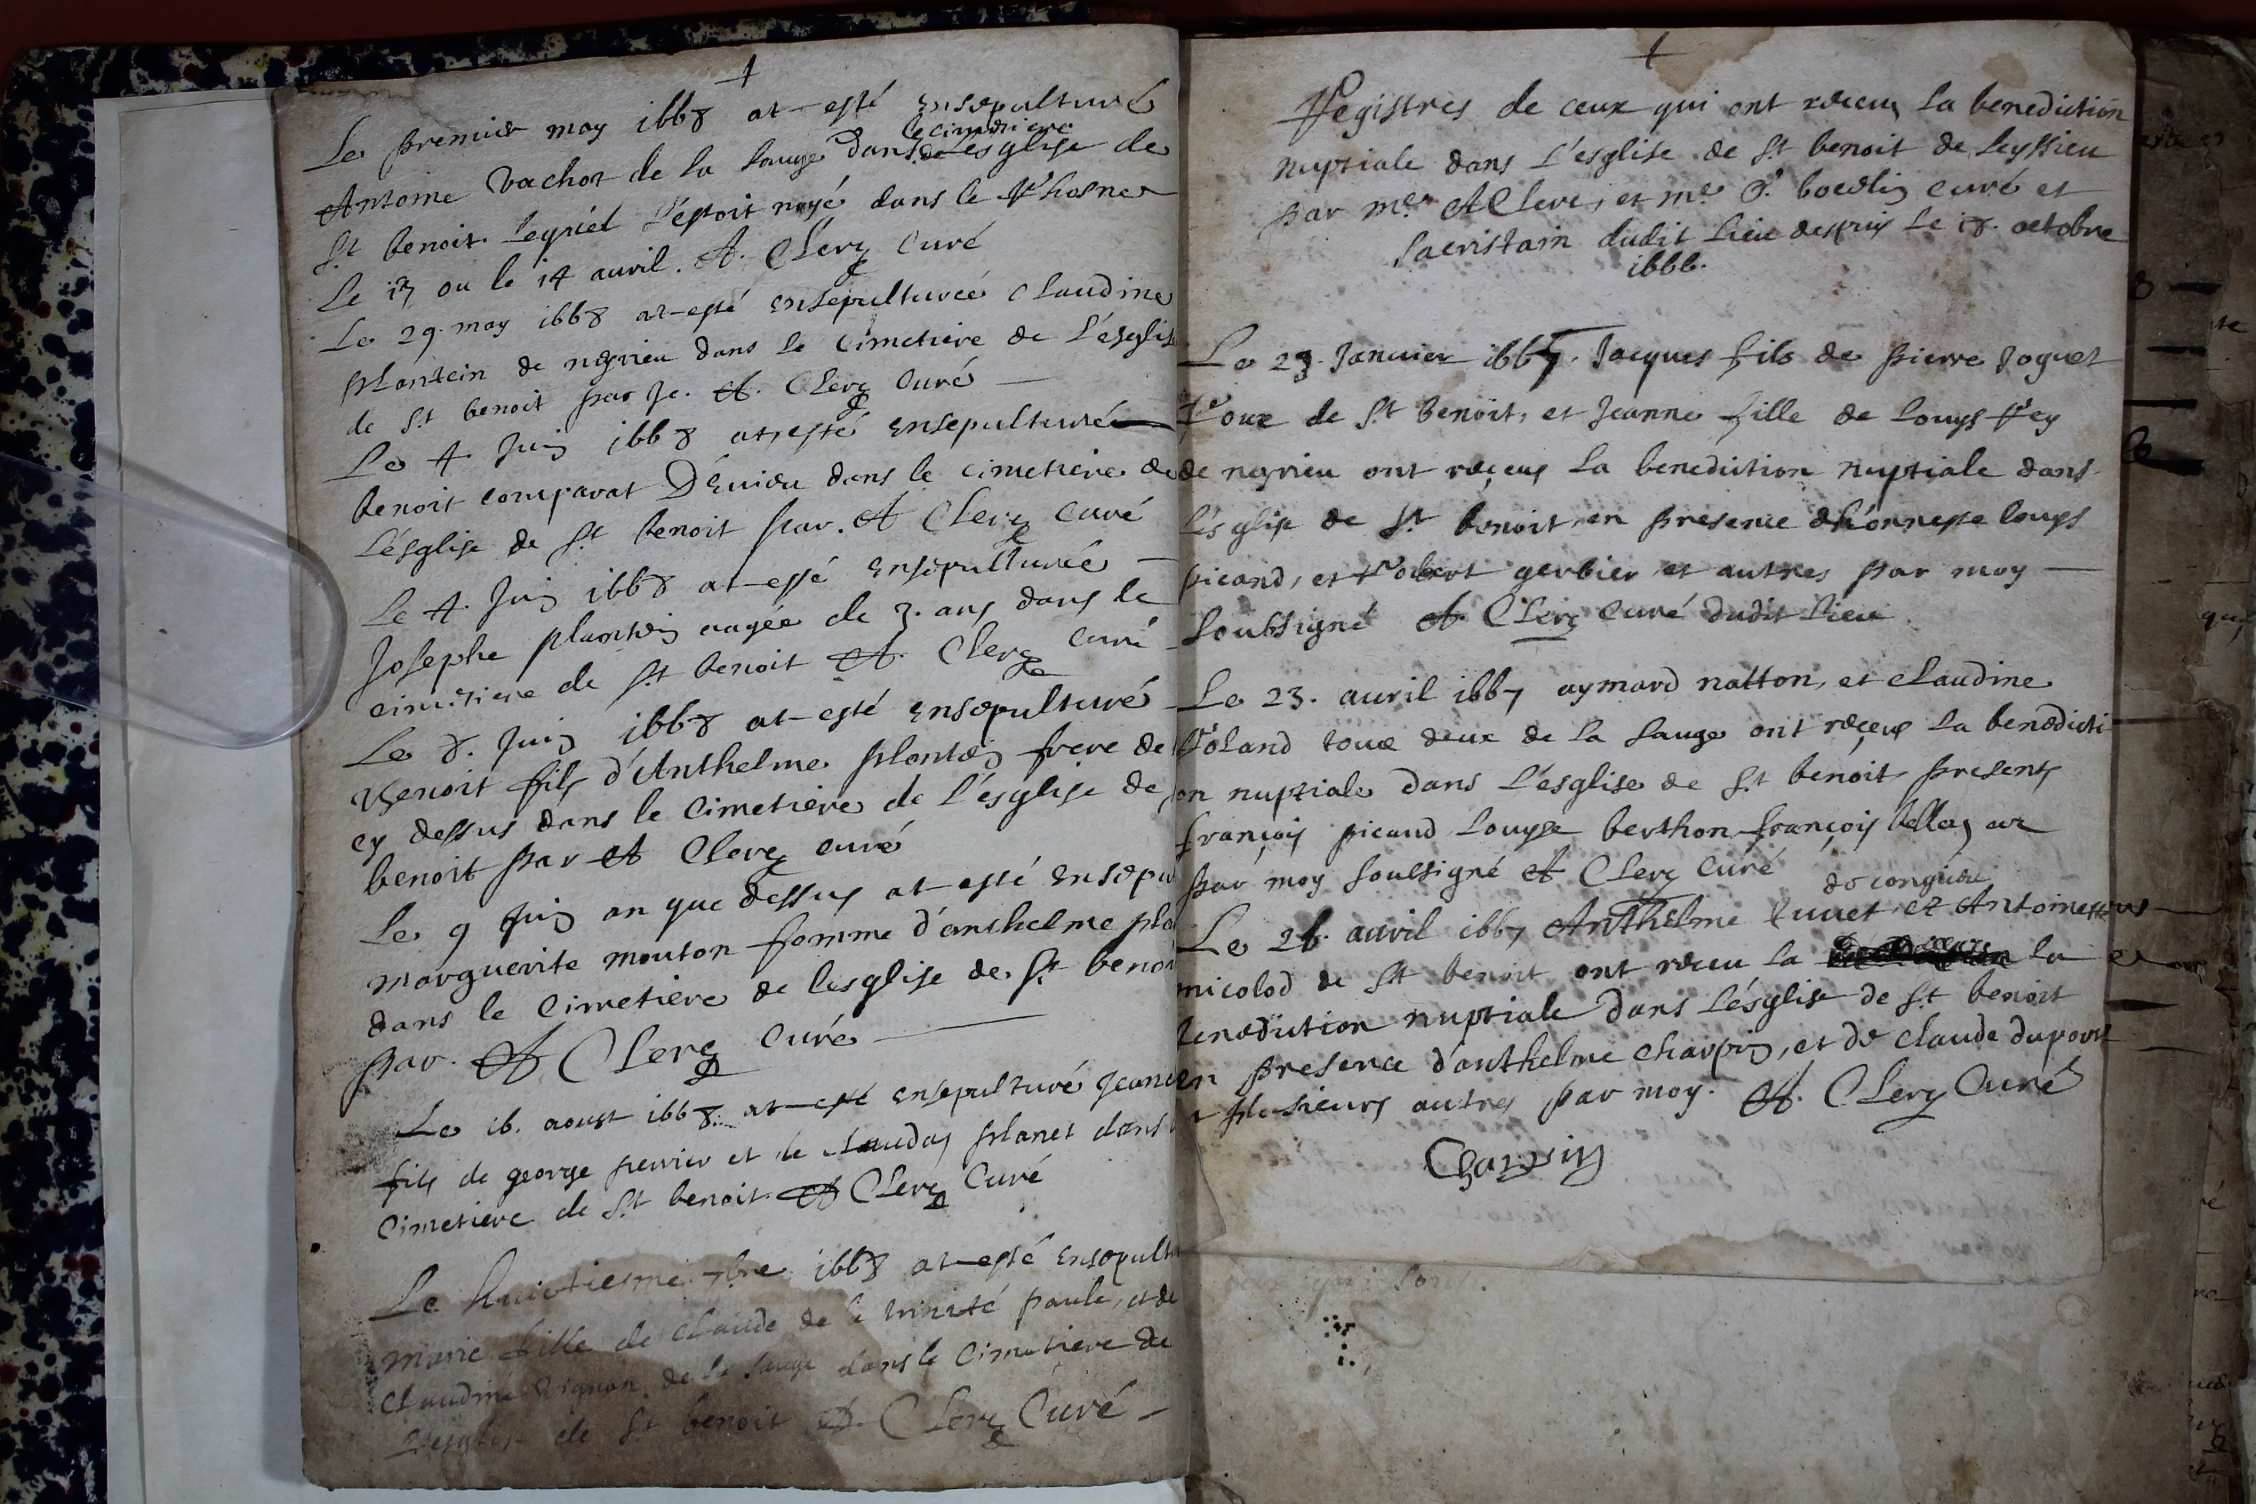 Le premier may 1668 at esté ensepulturé
Antoine vachot de la sauge dans le cimetiere de Lesglise de
St benoit. lequel s'estoit noyé dans le Rhosne
Le 13 ou le 14 avril. A. Clerc Curé
Le 29. may 1668 at esté ensepulturée Claudine
plantein de neyrieu dans le Cimetiere de L'esglise
de St benoit par Je. A. Clerc Curé
Le 4. Juin 1668 at esté ensepulturé
benoit comparat D'Evieu dans le cimetiere de
L'ésglise de St benoit par. A Clerc curé
Le 4. Juin 1668 at esté ensepulturée
Josephe plantein aagée de 3. ans dans le
cimetiere de St benoit A. Clerc curé
Le 8. Juin 1668 at esté ensepulturé
Benoit fils d'Anthelme plantein frere de
cy dessus dans le Cimetiere de l'ésglise de
benoit par A Clerc curé
Le 9 Juin an que dessus at esté ensepu
marguerite mouton femme d'anthelme pla
dans le Cimetiere de lesglise de St benoi
par. A Clerc Curé
Le 16. aoust 1668. at esté ensepulturé Jean
fils de george perrier et de claudaz planet dans
Cimetiere de St benoit. A Clerc Curé
Le huictiesme 7bre 1668 at esté ensepult
marie fille de Claude de la trinité paule, et de
Claudine vignon de la sauge dans le Cimetiere de
L'esglise de St benoit A. Clerc Curé
Registres de ceux qui ont receu la benediction
nuptiale dans l'esglise de St benoit de Seyssieu
par mre A Clerc, et mre curé et
sacristain dudit lieu despuis le 18. octobre
1666.
Le 23. Janvier 1667. Jacques fils de pierre Joguet
Roux de St benoit, et Jeanne fille de Louys Rey
de neyrieu ont reçeus la benediction nuptiale dans
L'ésglise de St benoit en presence d'honneste Louys
picand, et Robert gerbier et autres par moy
Soubsigné A. Clerc Curé dudit lieu
Le 23. avril 1667 aymard natton, et Claudine
Roland tous deux de la sauge ont reçeus la benedicti
on nuptiale dans l'esglise de St benoit presents
françois picand Louyse berthon françois
par moy soubsigné A Clerc Curé
Le 26. avril 1667 Anthelme Cuvet de conguieu et Antoinette
micolod de St benoit ont receu la la
benediction nuptiale dans L'ésglise de St benoit
en presence d'anthelme Charpin, et de Claude dupont
et plusieurs autres par moy. A. Clerc Curé
Charpin